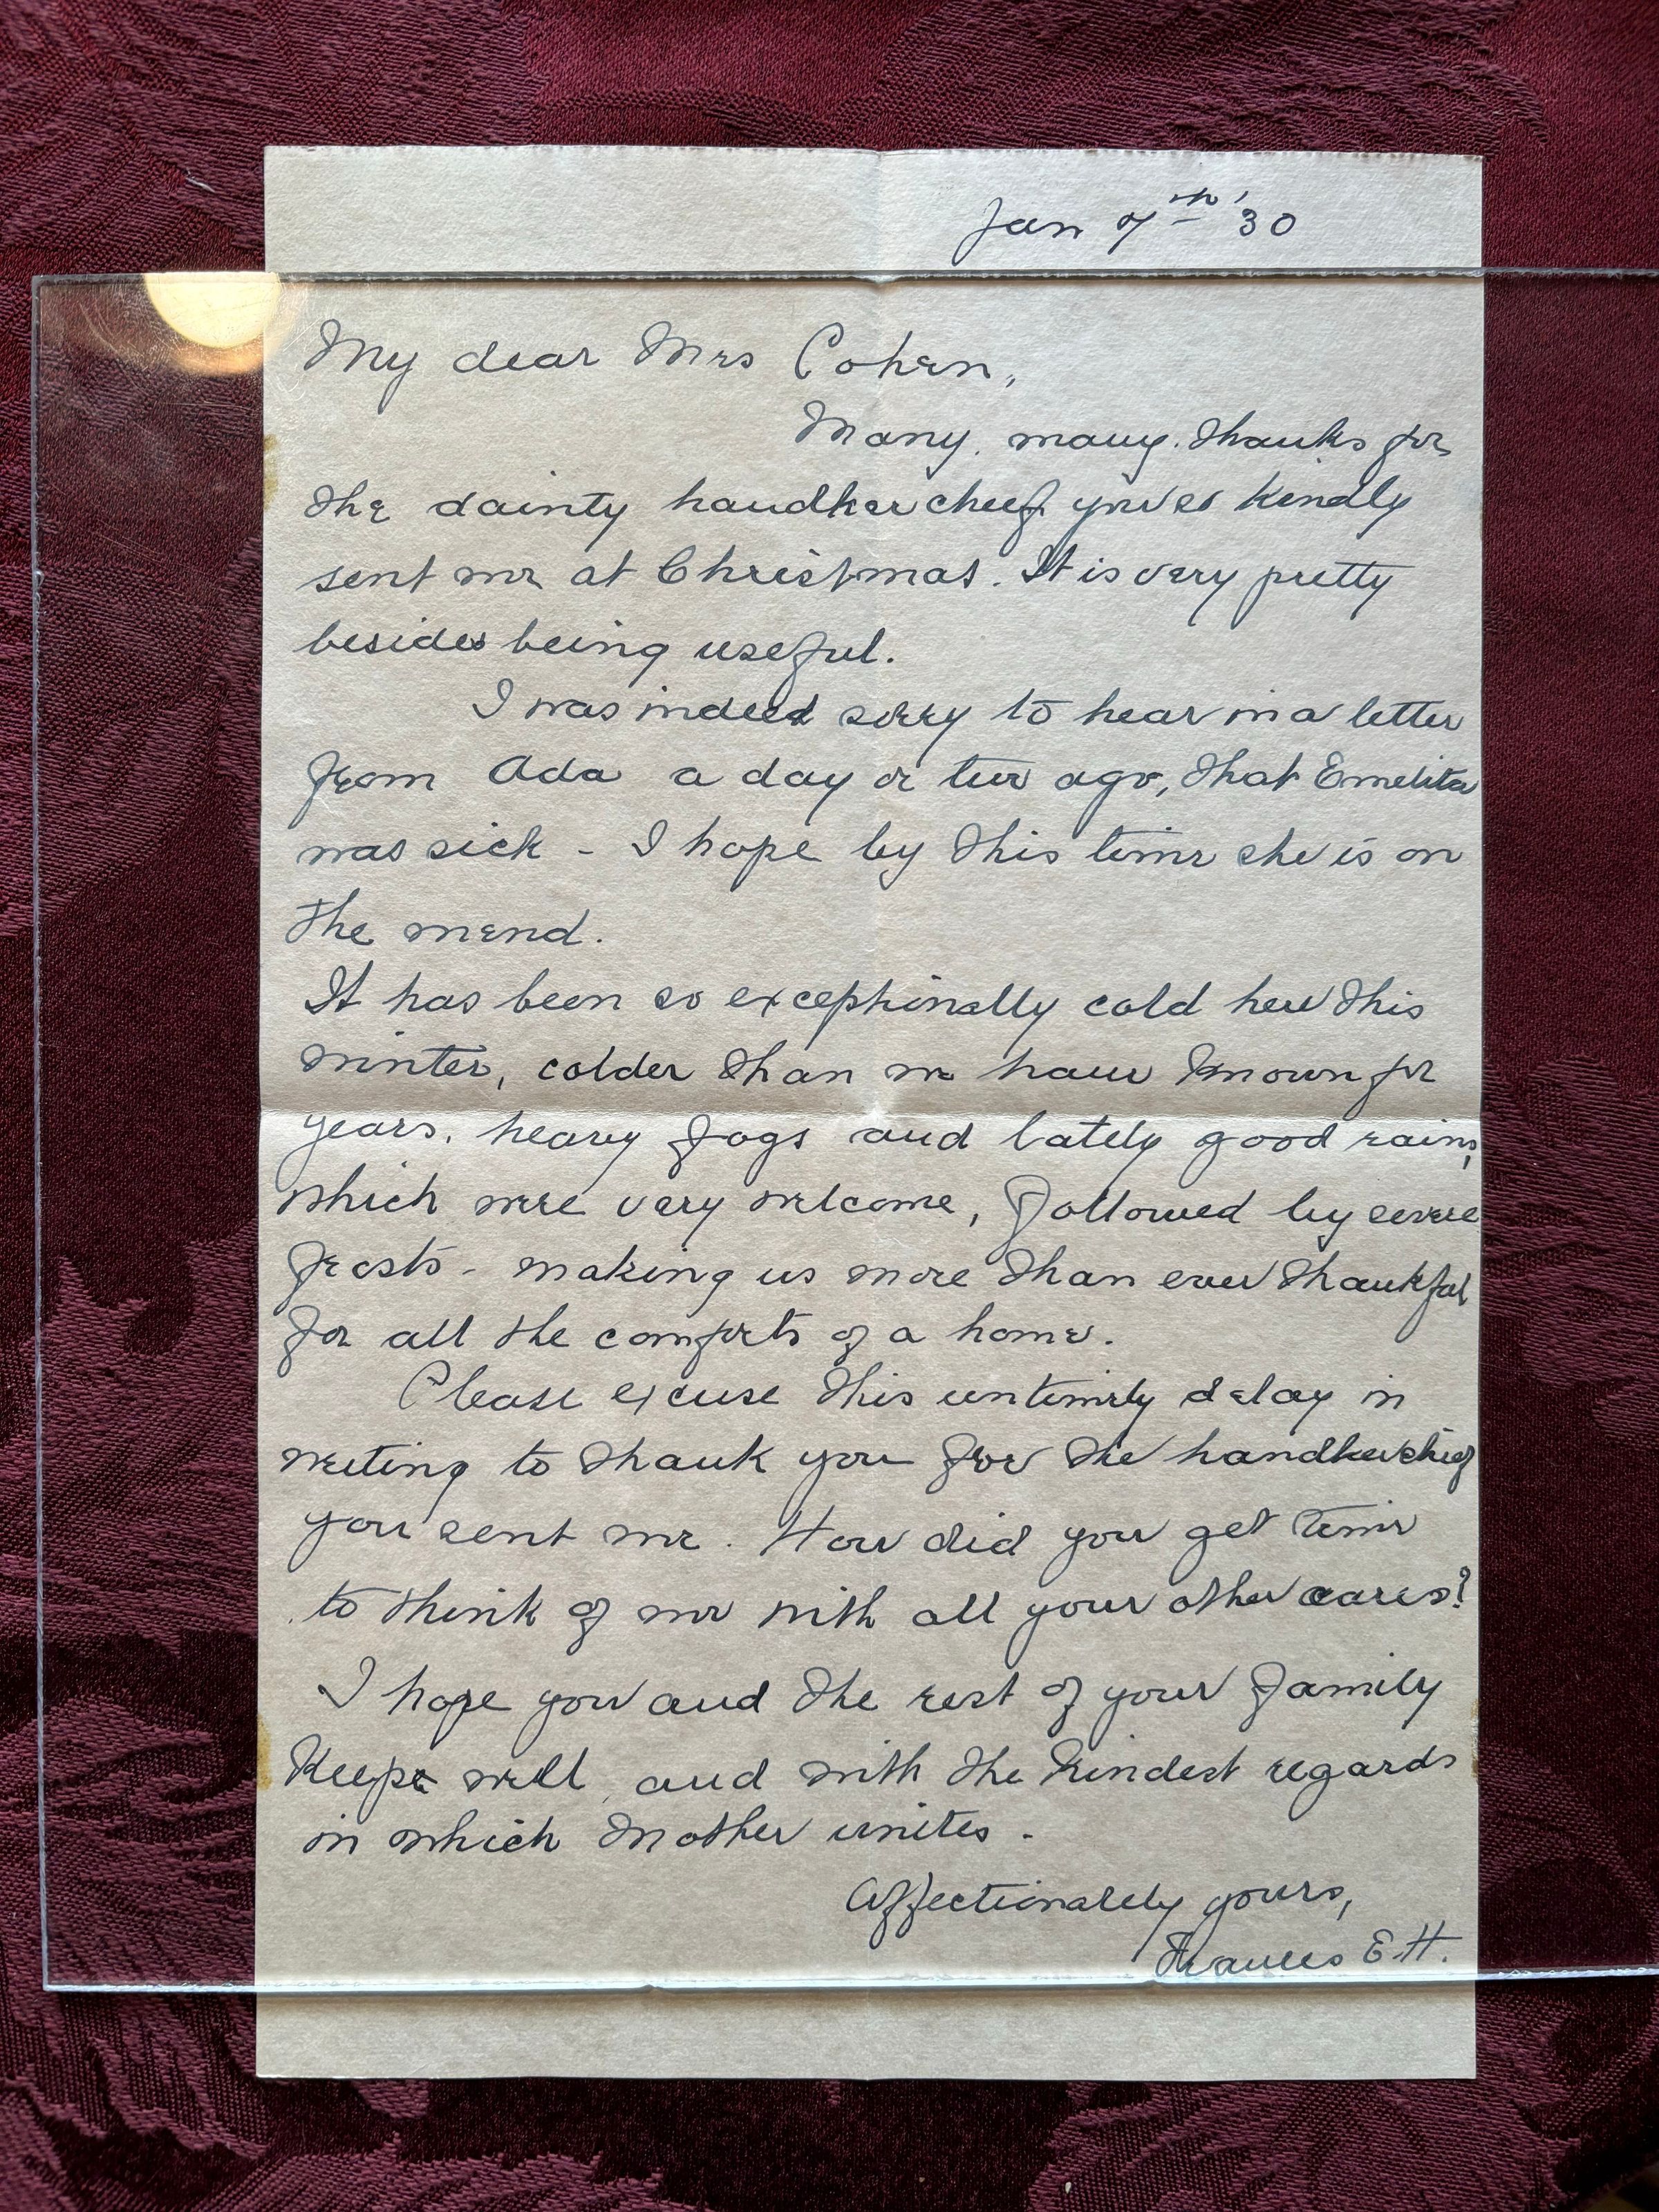 Jan 7th '30
My dear Mrs Cohen,
Many, many thanks for
the dainty handkercheef you so kindly
sent me at Christmas. It is very pretty
besides being useful.
I was indeed sorry to hear in a letter
from Ada a day or two ago, that Emelita
was sick - I hope by this time she is on
the mend.
It has been so exceptionally cold here this
winter, colder than we have known for
years, heavy fogs and lately good rains,
which were very welcome, followed by severe
frosts - making us more than ever thankful
for all the comforts of a home.
Please excuse this untimely delay in
writing to thank you for the handkerchief
you sent me. How did you get time
to think of me with all your other cares?
I hope you and the rest of your family
keep well, and with the kindest regards
in which Mother unites.
Affectionately yours,
Frances E. H.